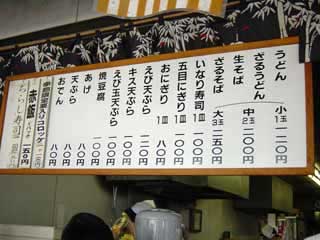 うどん 小1玉 一二〇円
ざるうどん
生そば 中2玉 二〇〇円
ざるそば 大3玉 二五〇円
いなり寿司 1皿 一〇〇円
五目にぎり 1皿 一〇〇円
おにぎり 1皿 八〇円
えび天ぷら 一二〇円
キス天ぷら 一〇〇円
えび玉天ぷら 一〇〇円
焼豆腐 一〇〇円
あげ 八〇円
天ぷら 八〇円
おでん 八〇円
コロッケ
赤飯
ちらし寿司